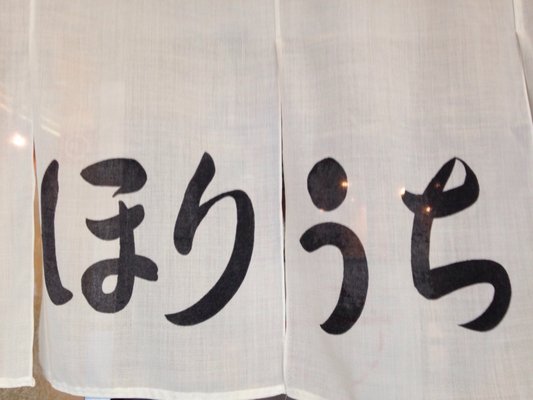 ほりうち